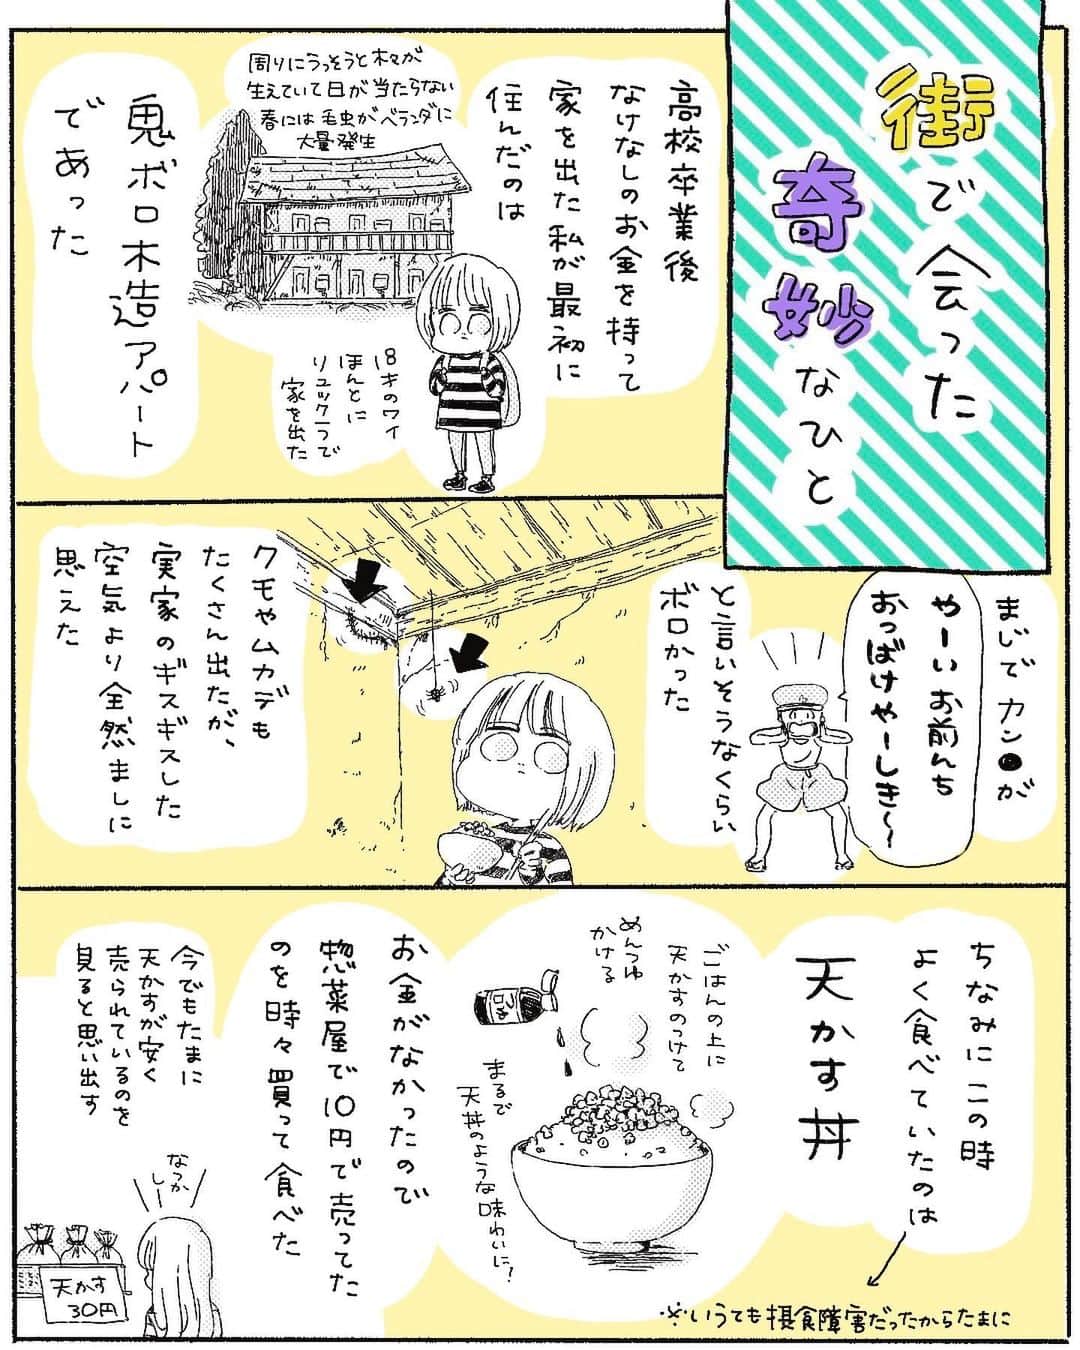 街で会った
奇妙なひと
高校卒業後
なけなしのお金を持って
家を出た私が最初に
住んだのは
周りにうっそうと木々が
生えていて日が当たらない
春には毛虫がベランダに
大量発生
18才のワイ
ほんとに
リュック一つで
家を出た
鬼ボロ木造アパート
であった
まじでカン●が
やーいお前んち
おっばけやーしき〜
と言いそうなくらい
ボロかった
クモやムカデも
たくさん出たが、
実家のギスギスした
空気より全然ましに
思えた
ちなみにこの時
よく食べていたのは
天かす丼
※いうても摂食障害だったからたまに
ごはんの上に
天かすのっけて
めんつゆ
かける
つゆ
まるで
天丼のような味わいに!
お金がなかったので
惣菜屋で10円で売ってた
のを時々買って食べた
今でもたまに
天かすが安く
売られているのを
見ると思い出す
なつか
し
天かす
30円